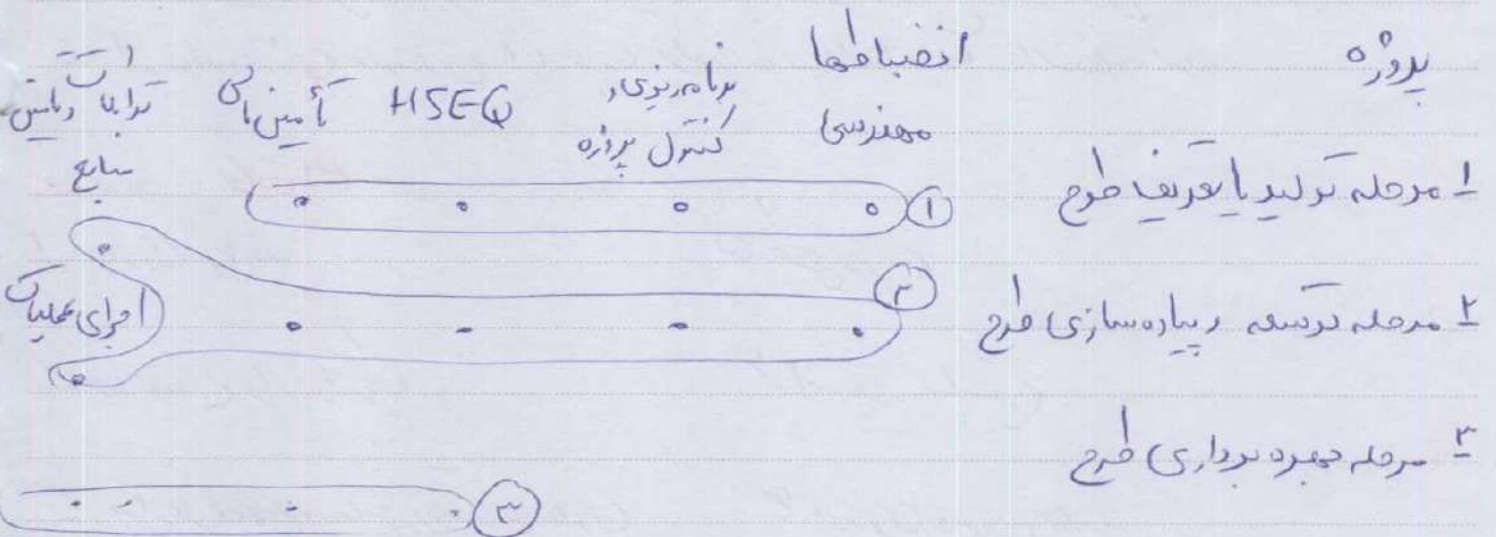 پروژه
انضباطها
مهندسی
برنامه‌ریزی و
کنترل پروژه
HSEQ
تأمین مالی
تدارکات و تأمین
منابع
۱ مرحله تولید یا تعریف طرح
①
۲ مرحله توسعه و پیاده سازی طرح
②
اجرای عملیات
۳ مرحله بهره برداری طرح
③